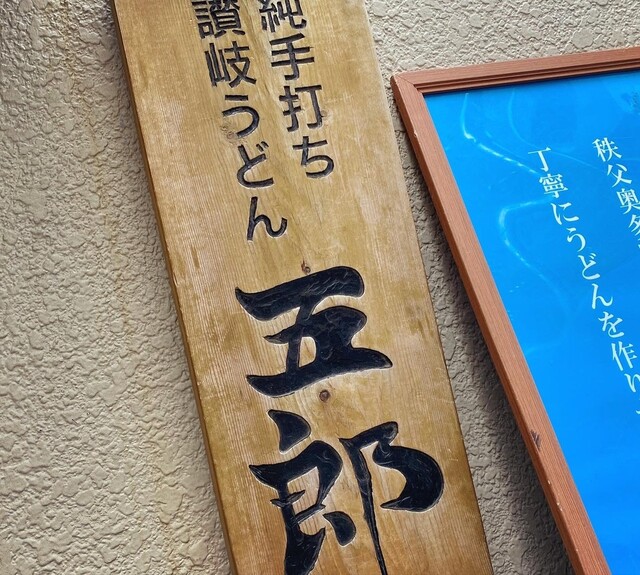 純手打ち
讃岐うどん
五郎
秩父奥多
丁寧にうどんを作り